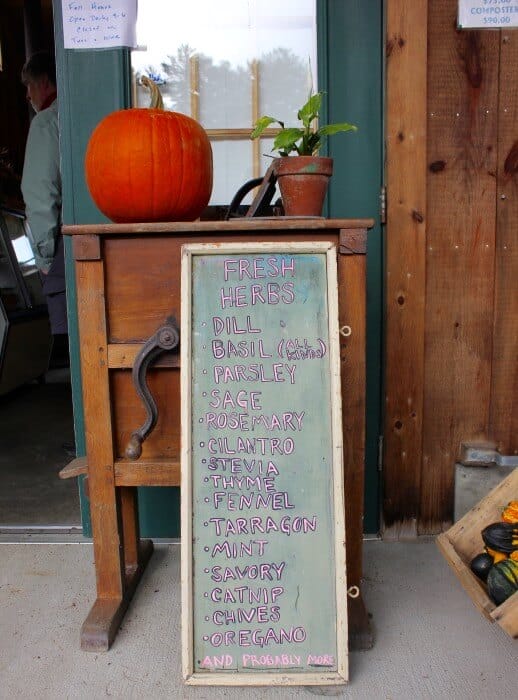 Fall Hours
Open Daily 9-6
Closed on
Tues & Wed
$75.00
COMPOSTER
$90.00
FRESH
HERBS
• DILL
• BASIL (ALL KINDS)
• PARSLEY
• SAGE
• ROSEMARY
• CILANTRO
• STEVIA
• THYME
• FENNEL
• TARRAGON
• MINT
• SAVORY
• CATNIP
• CHIVES
• OREGANO
AND PROBABLY MORE